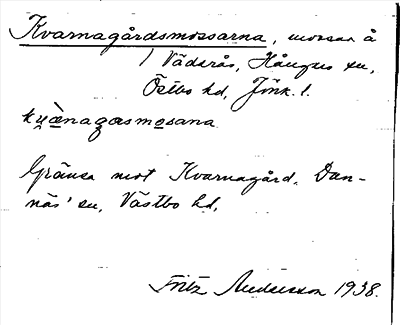 Kvarnagårdsmossarna, mossar å
/ Väderås, Hångers sn,
Östbo hd, Jönk. l.
Gränsa mot Kvarnagård, Dan-
näs' sn, Västbo hd,
Fritz Andersson 1938.